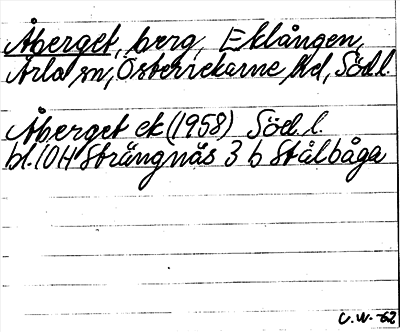 Åberget, berg, Eklången,
Ärla sn, Österrekarne hd, Södl.
Åberget ek (1958) Södl.
bl. 10H Strängnäs 3 b Stålbåga
C.W. -62